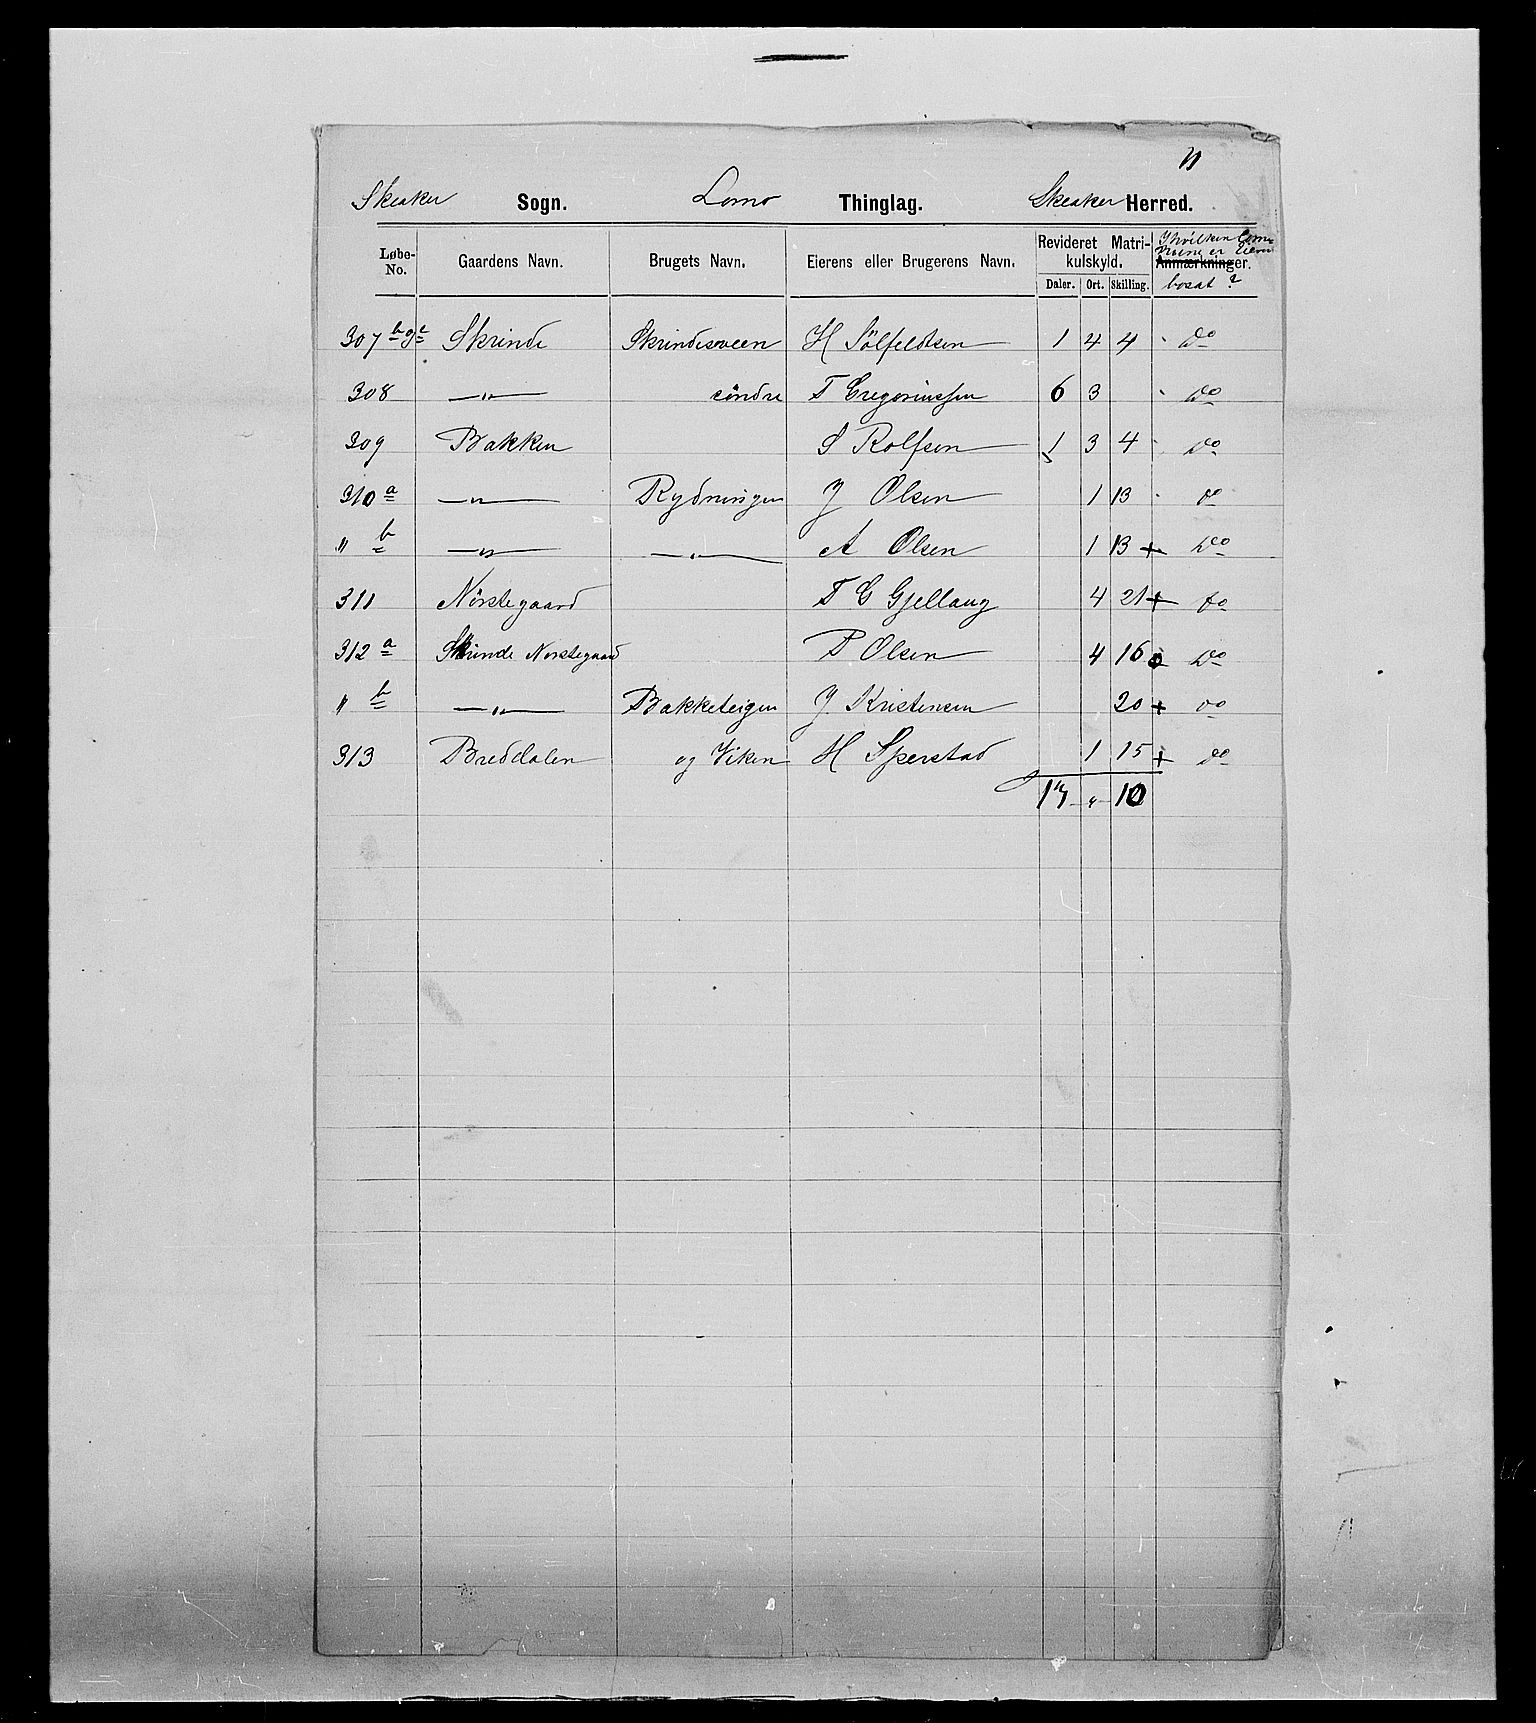 11
Skeaker Sogn. Lomo Thinglag. Skeaker Herred.
Løbe-No. Gaardens Navn. Brugets Navn. Eierens eller Brugerens Navn. Revideret Matrikulskyld. Daler. Ort. Skilling. Anmærkninger. I hvilken Com- er Eieren bosat?
307 b Skrinde Skrindesveen H Sölfeldtsen 1 4 4 Do
308 —"— söndre T Gregoriussen 6 3 Do
309 Bakken S Rolfsen 1 3 4 Do
310 a —"— Rydningen J Olsen 1 13 Do
" b —"— —"— A Olsen 1 13 + Do
311 Nörstegaard T G Gjellaug 4 21 + Do
312 a Skrinde Norstegaard P Olsen 4 16 o Do
" b —"— Bakketeigen J Kristensen 20 + Do
313 Breddalen og Viken H Sperstad 1 15 + Do
17 " 10